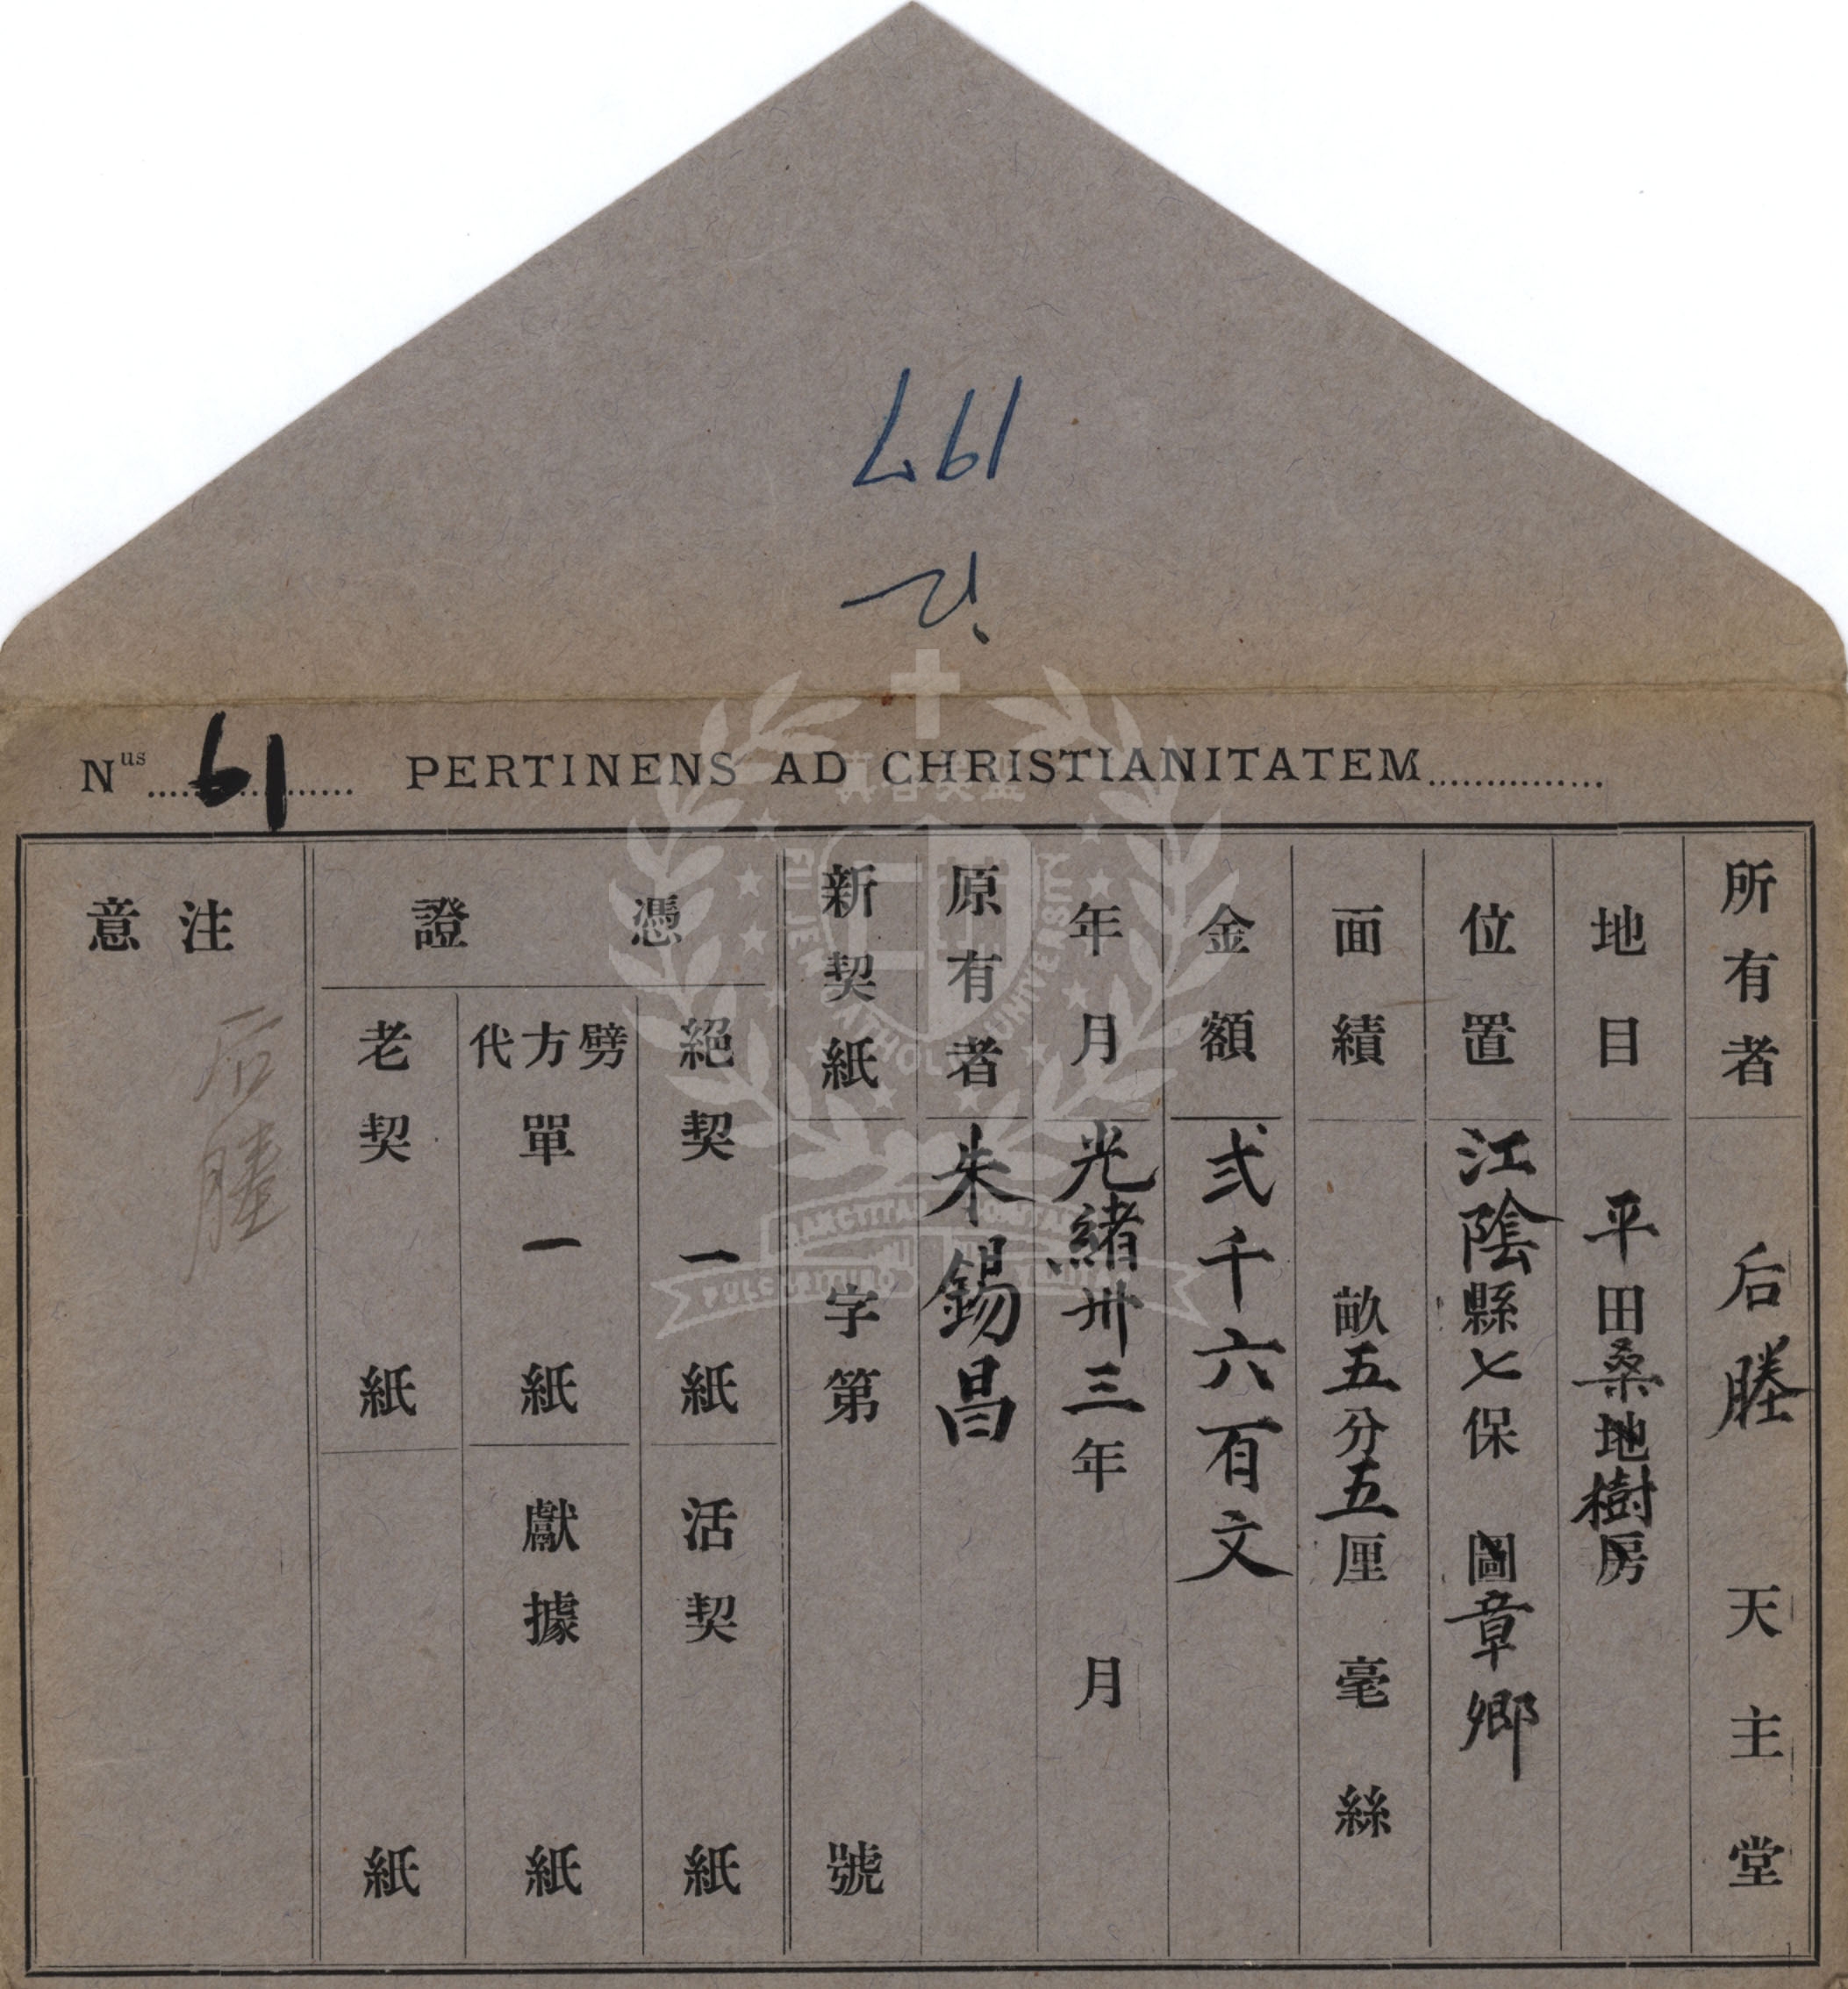 197
N^us 61 PERTINENS AD CHRISTIANITATEM
所有者 后塍 天主堂
地目 平田桑地樹房
位置 江陰縣七保 圖章鄉
面績 畝五分五厘 毫 絲
金額 弍千六百文
年月 光緒卅三年 月
原有者 朱錫昌
新契紙 字第 號
憑證
絕契 一 紙 活契 紙
劈方代單 一 紙 獻據 紙
老契 紙 紙
注意
后塍
真善美聖
FU JEN CATHOLIC UNIVERSITY